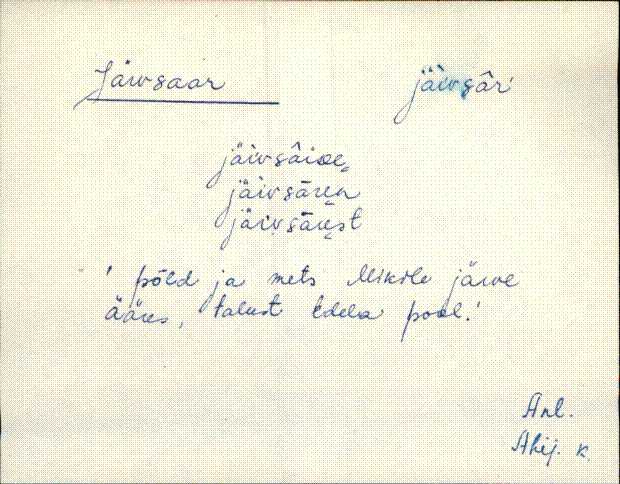 Järvsaar jäìvsâr'
jäìvsâiɒe
jäìvsāren
jäìvsārest
' põld ja mets Mikile järve
ääres, talust Edela pool.'
Anl.
Ahij. k.